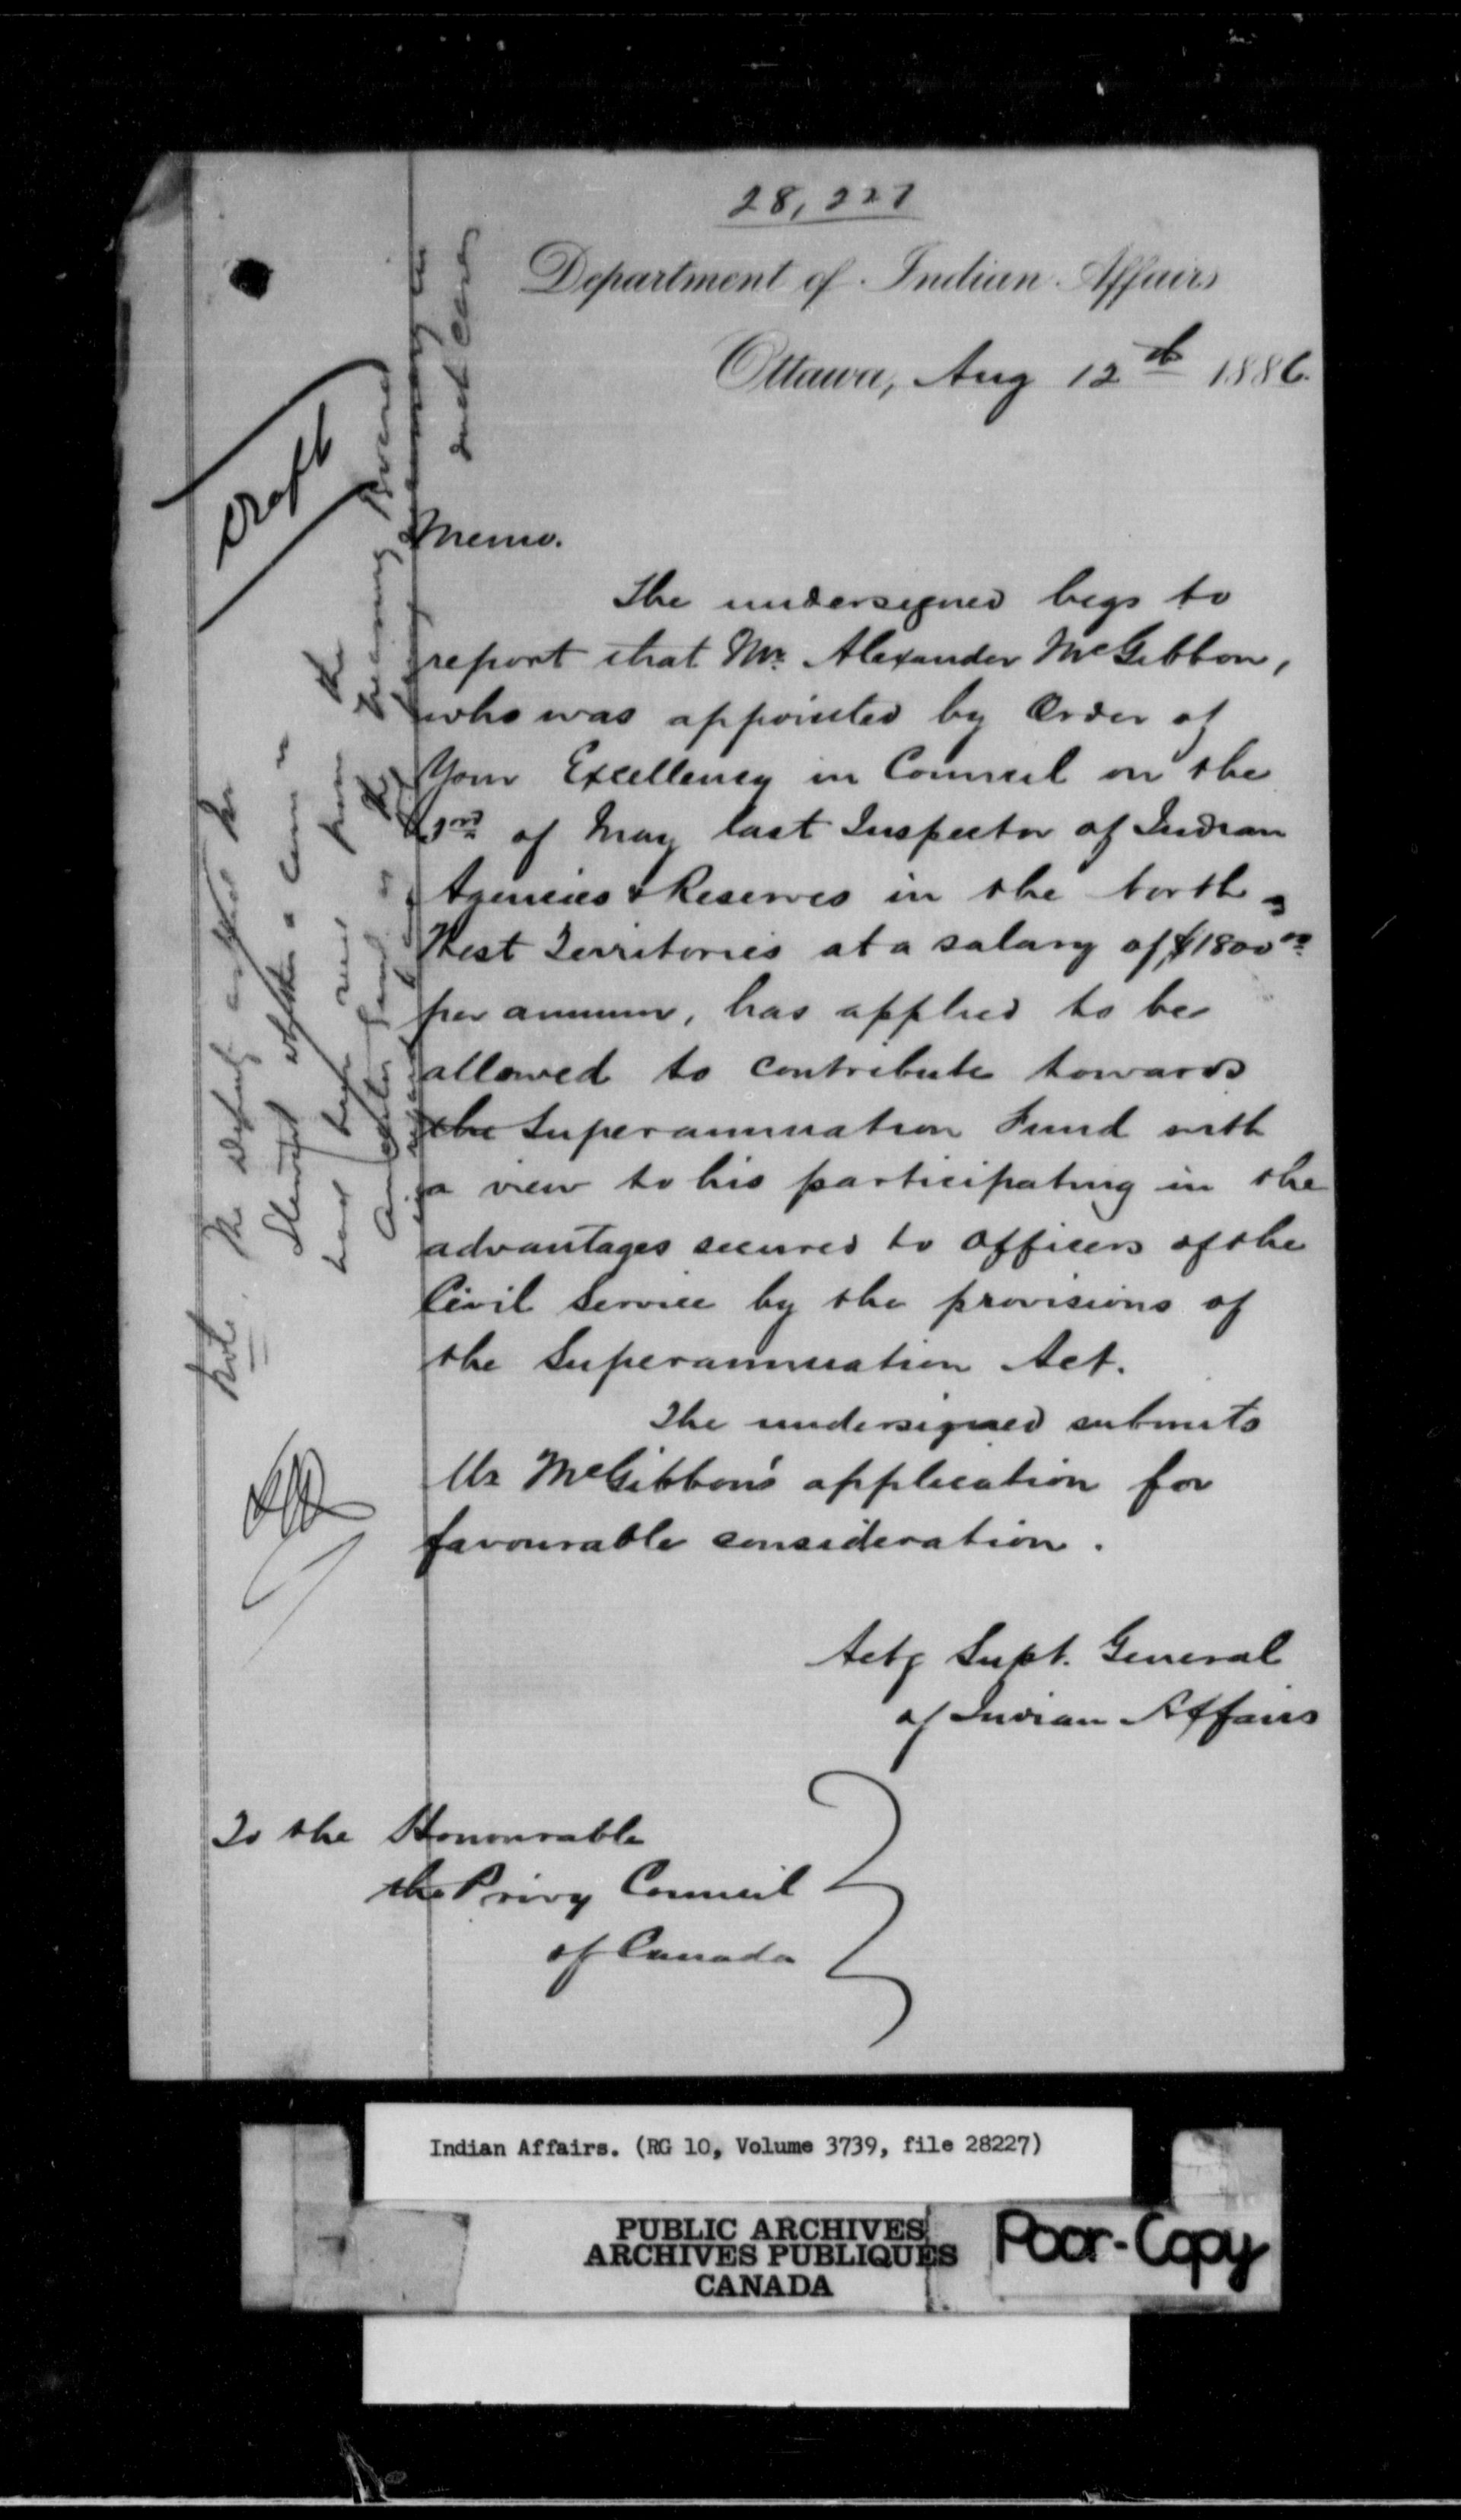 28,227
Department of Indian Affairs
Ottawa, Aug 12th 1886.
Draft
Memo.
The undersigned begs to
report that Mr. Alexander McGibbon,
who was appointed by Order of
Your Excellency in Council on the
3rd of May last Inspector of Indian
Agencies & Reserves in the North=
West Territories at a salary of $1800.00
per annum, has applied to be
allowed to contribute towards
the Superannuation Fund with
a view to his participating in the
advantages secured to Officers of the
Civil Service by the provisions of
the Superannuation Act.
The undersigned submits
Mr McGibbon's application for
favourable consideration.
Actg Supt. General
of Indian Affairs
To the Honourable
the Privy Council
of Canada
Note. The Deputy asked Mr
Stewart whether a com n
had been recd from the
Auditor Genl or the Treasury Board
in regard to
such cases
Indian Affairs. (RG 10, Volume 3739, file 28227)
PUBLIC ARCHIVES
ARCHIVES PUBLIQUES
CANADA
Poor-Copy